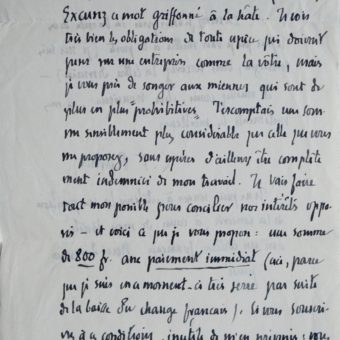 Excusez ce mot griffonné à la hâte. Je vois
très bien les obligations de toute espèce qui doivent
peser sur une entreprise comme la vôtre, mais
je vous prie de songer aux miennes qui sont de
plus en plus "prohibitives". J'escomptais une som-
me sensiblement plus considérable que celle que vous
me proposez, sans espérer d'ailleurs être complète-
ment indemnisé de mon travail. Je vais faire
tout mon possible pour concilier nos intérêts oppo-
sés – et voici ce que je vous propose : une somme
de 800 fr. avec paiement immédiat (ceci, parce
que je suis en ce moment-ci très serré par suite
de la baisse du change français). Si vous souscri-
vez à ces conditions, inutile de m'en prévenir : vous